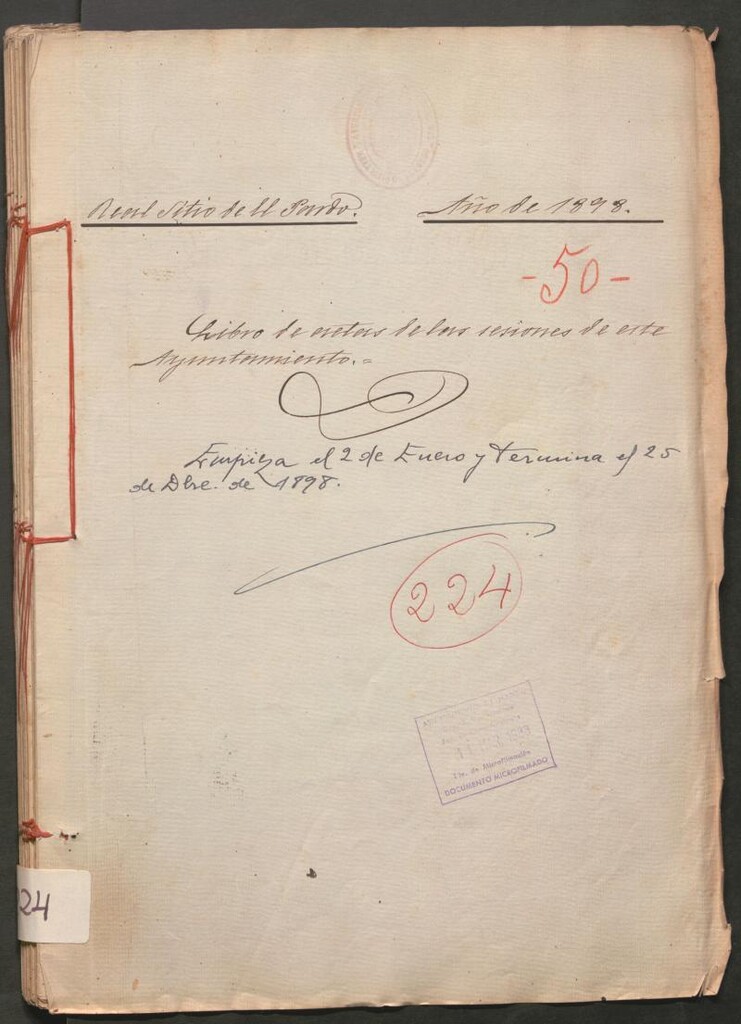 Real Sitio de El Pardo. Año de 1898.
-50-
Libro de actas de las sesiones de este
Ayuntamiento.=
Empieza el 2 de Enero y termina el 25
de Dbre. de 1898.
224
AYUNTAMIENTO DE MADRID
Sto. de Microfilmación
DOCUMENTO MICROFILMADO
224